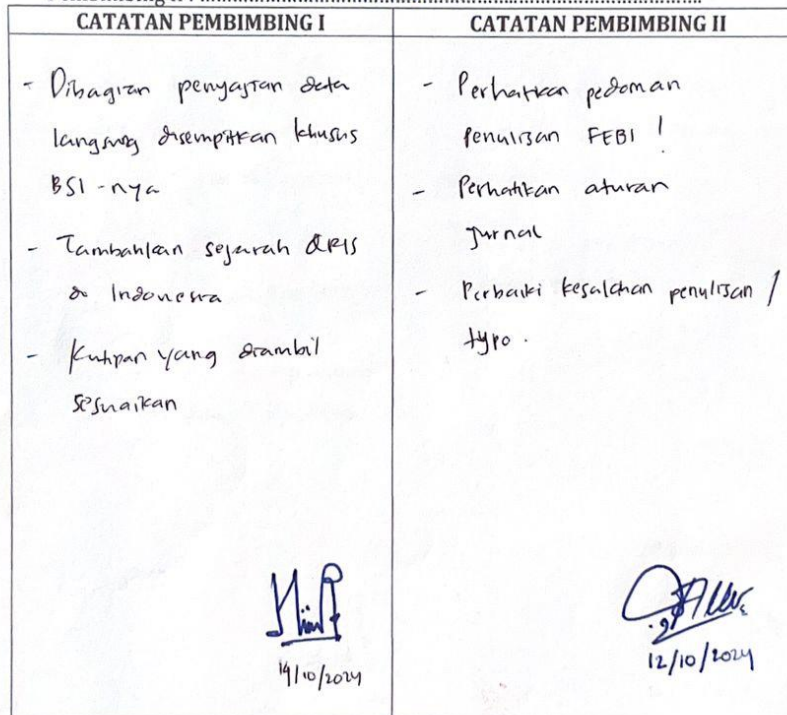 CATATAN PEMBIMBING I
- Dibagian penyajian data
langsung disempitkan khusus
BSI-nya
- Tambahkan sejarah QRIS
di Indonesia
- Kutipan yang diambil
sesuaikan
14/10/2024
CATATAN PEMBIMBING II
- Perhatikan pedoman
Penulisan FEBI !
- Perhatikan aturan
Jurnal
- Perbaiki kesalahan penulisan /
typo.
12/10/2024